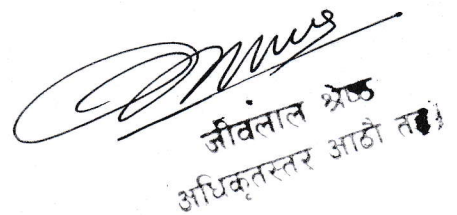 जीवंलाल श्रेष्ठ
अधिकृतस्तर आठौ